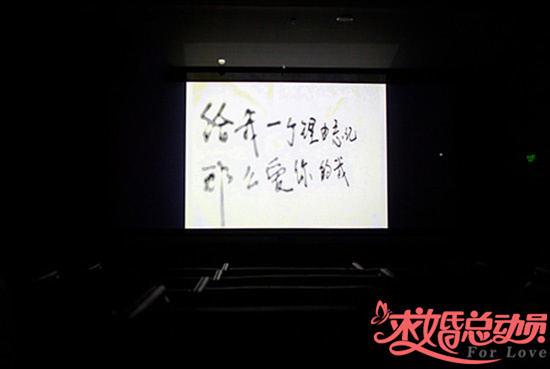 给我一个理由忘记
那么爱你的我
求婚总动员
For Love